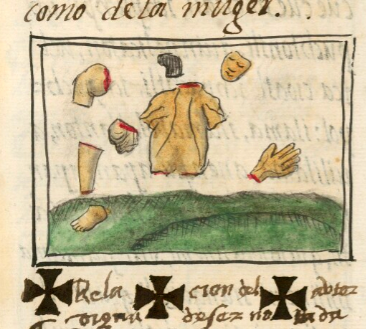 como de la muger.
Rela cion del autor
digna de ser no ta da